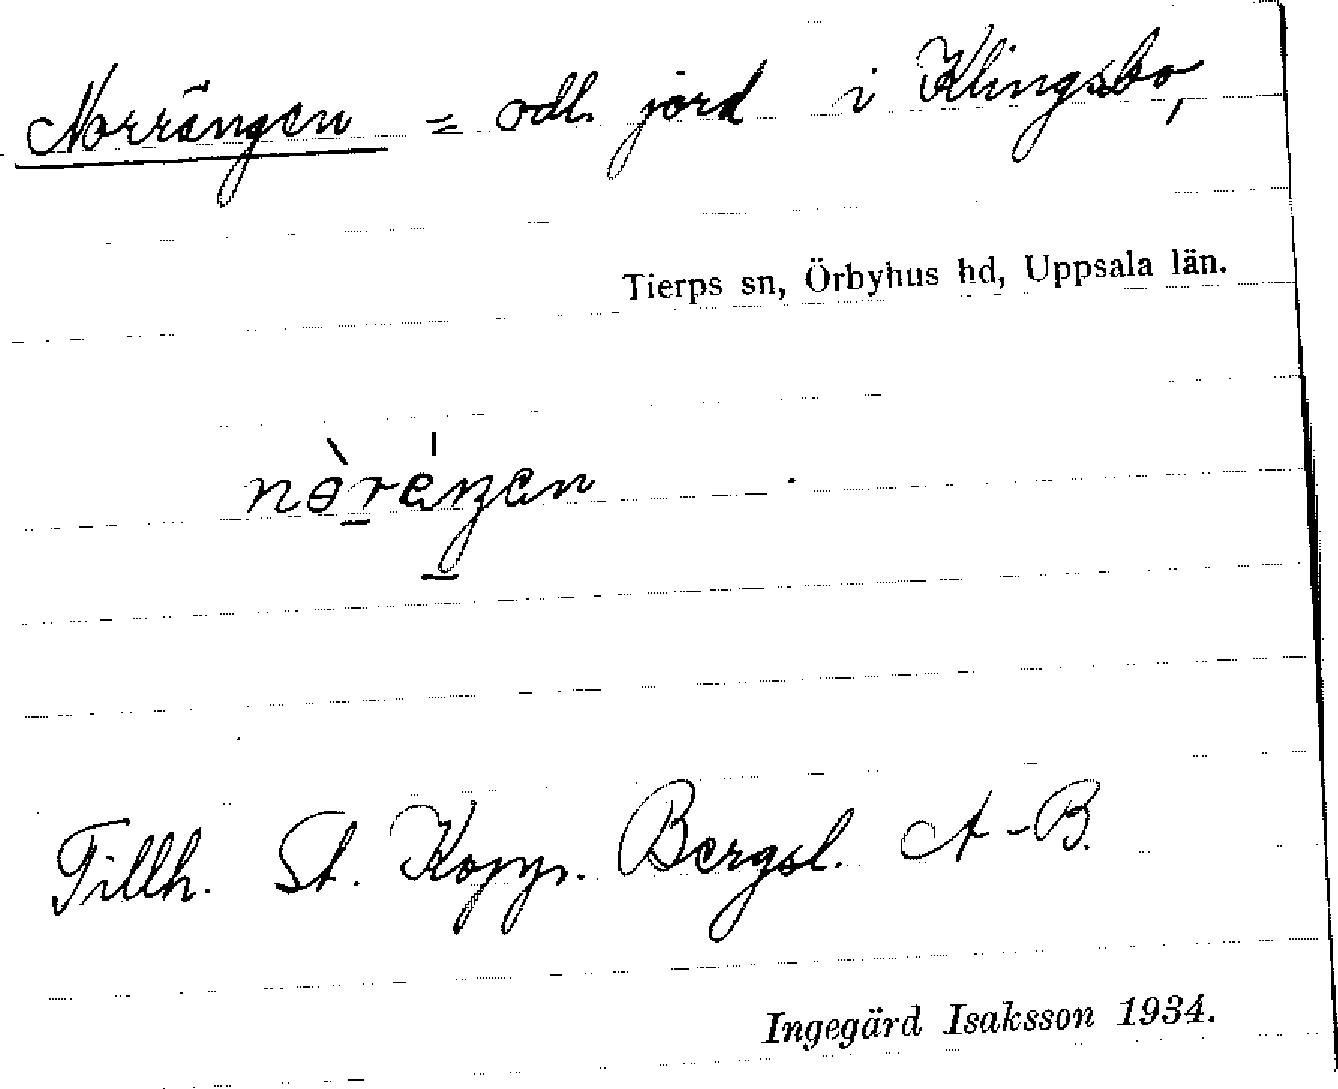 Norrängen = odl. jord i Klingsbo,
Tierps sn, Örbyhus hd, Uppsala län.
Tillh. St. Kopp. Bergsl. A-B.
Ingegärd Isaksson 1934.